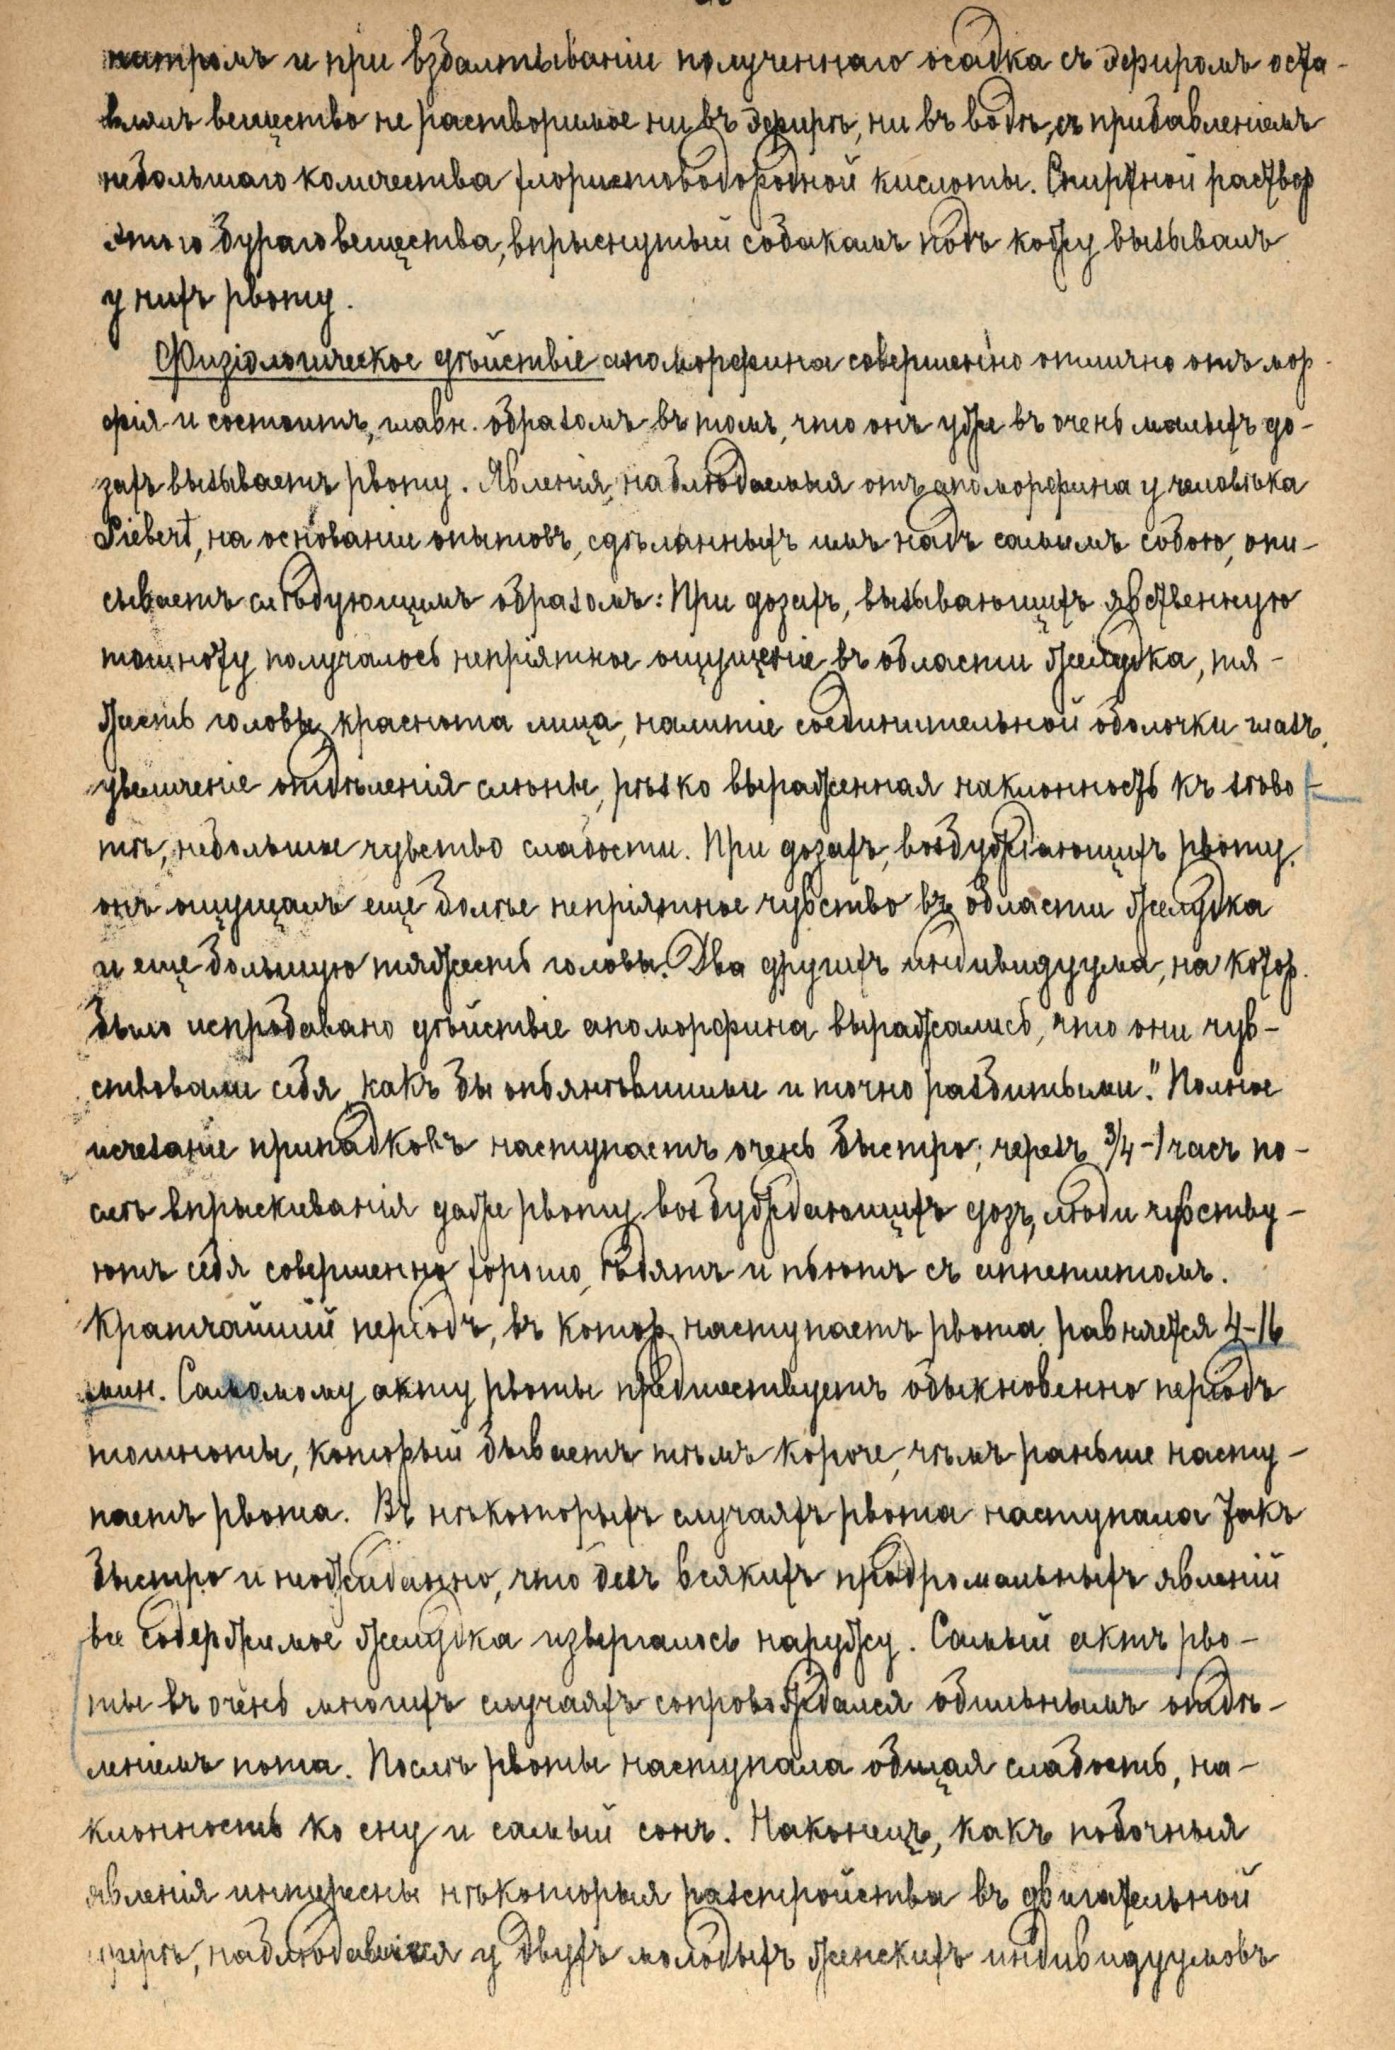 натромъ и при взбалтываніи полученнаго осадка съ эфиромъ оста-
влялъ вещество не растворимое ни въ эфирѣ, ни въ водѣ, съ прибавленіемъ
небольшаго количества хлористоводородной кислоты. Спиртной раствор
этого бураго вещества, впрыснутый собакамъ подъ кожу вызывалъ
у нихъ рвоту.
Физіологическое дѣйствіе апоморфина совершенно отлично отъ мор-
фія и состоитъ, главн. образомъ въ томъ, что онъ уже въ очень малыхъ до-
захъ вызываетъ рвоту. Явленія, наблюдаемыя отъ апоморфина у человѣка
Siebert, на основаніи опытовъ, сдѣланныхъ имъ надъ самимъ собою, опи-
сываетъ слѣдующимъ образомъ: При дозахъ, вызывающихъ явственную
тошноту получалось непріятное ощущеніе въ области желудка, тя-
жесть головы, краснота лица, налитіе соединительной оболочки глазъ,
увеличеніе отдѣленія слюны, рѣзко выраженная наклонность къ зѣво-
тѣ, небольшое чувство слабости. При дозахъ, возбуждающихъ рвоту,
онъ ощущалъ еще болѣе непріятное чувство въ области желудка
и еще большую тяжесть головы. Два другихъ индивидуума, на котор.
было испробавано дѣйствіе апоморфина выражались, что они чув-
ствовали себя „какъ бы опьянѣвшими и точно разбитыми". Полное
исчезаніе припадковъ наступаетъ очень быстро; черезъ 3/4-1 часъ по-
слѣ впрыскиванія даже рвоту возбуждающихъ дозъ, люди чувству-
ютъ себя совершенно хорошо, ѣдятъ и пьютъ съ аппетитомъ.
Кратчайшій періодъ, въ котор. наступаетъ рвота равняется 4-16
мин. Самому акту рвоты предшествуетъ обыкновенно періодъ
тошноты, который бываетъ тѣмъ короче, чѣмъ раньше насту-
паетъ рвота. Въ нѣкоторыхъ случаяхъ рвота наступала такъ
быстро и неожиданно, что безъ всякихъ продромальныхъ явленій
все содержимое желудка извергалось наружу. Самый актъ рво-
ты въ очень многихъ случаяхъ сопровождался обильнымъ отдѣ-
леніемъ пота. Послѣ рвоты наступала общая слабость, на-
клонность ко сну и самый сонъ. Наконецъ, какъ побочныя
явленія интересны нѣкоторыя разстройства въ двигательной
сферѣ, наблюдавшіяся у двухъ молодыхъ женскихъ индивидуумовъ